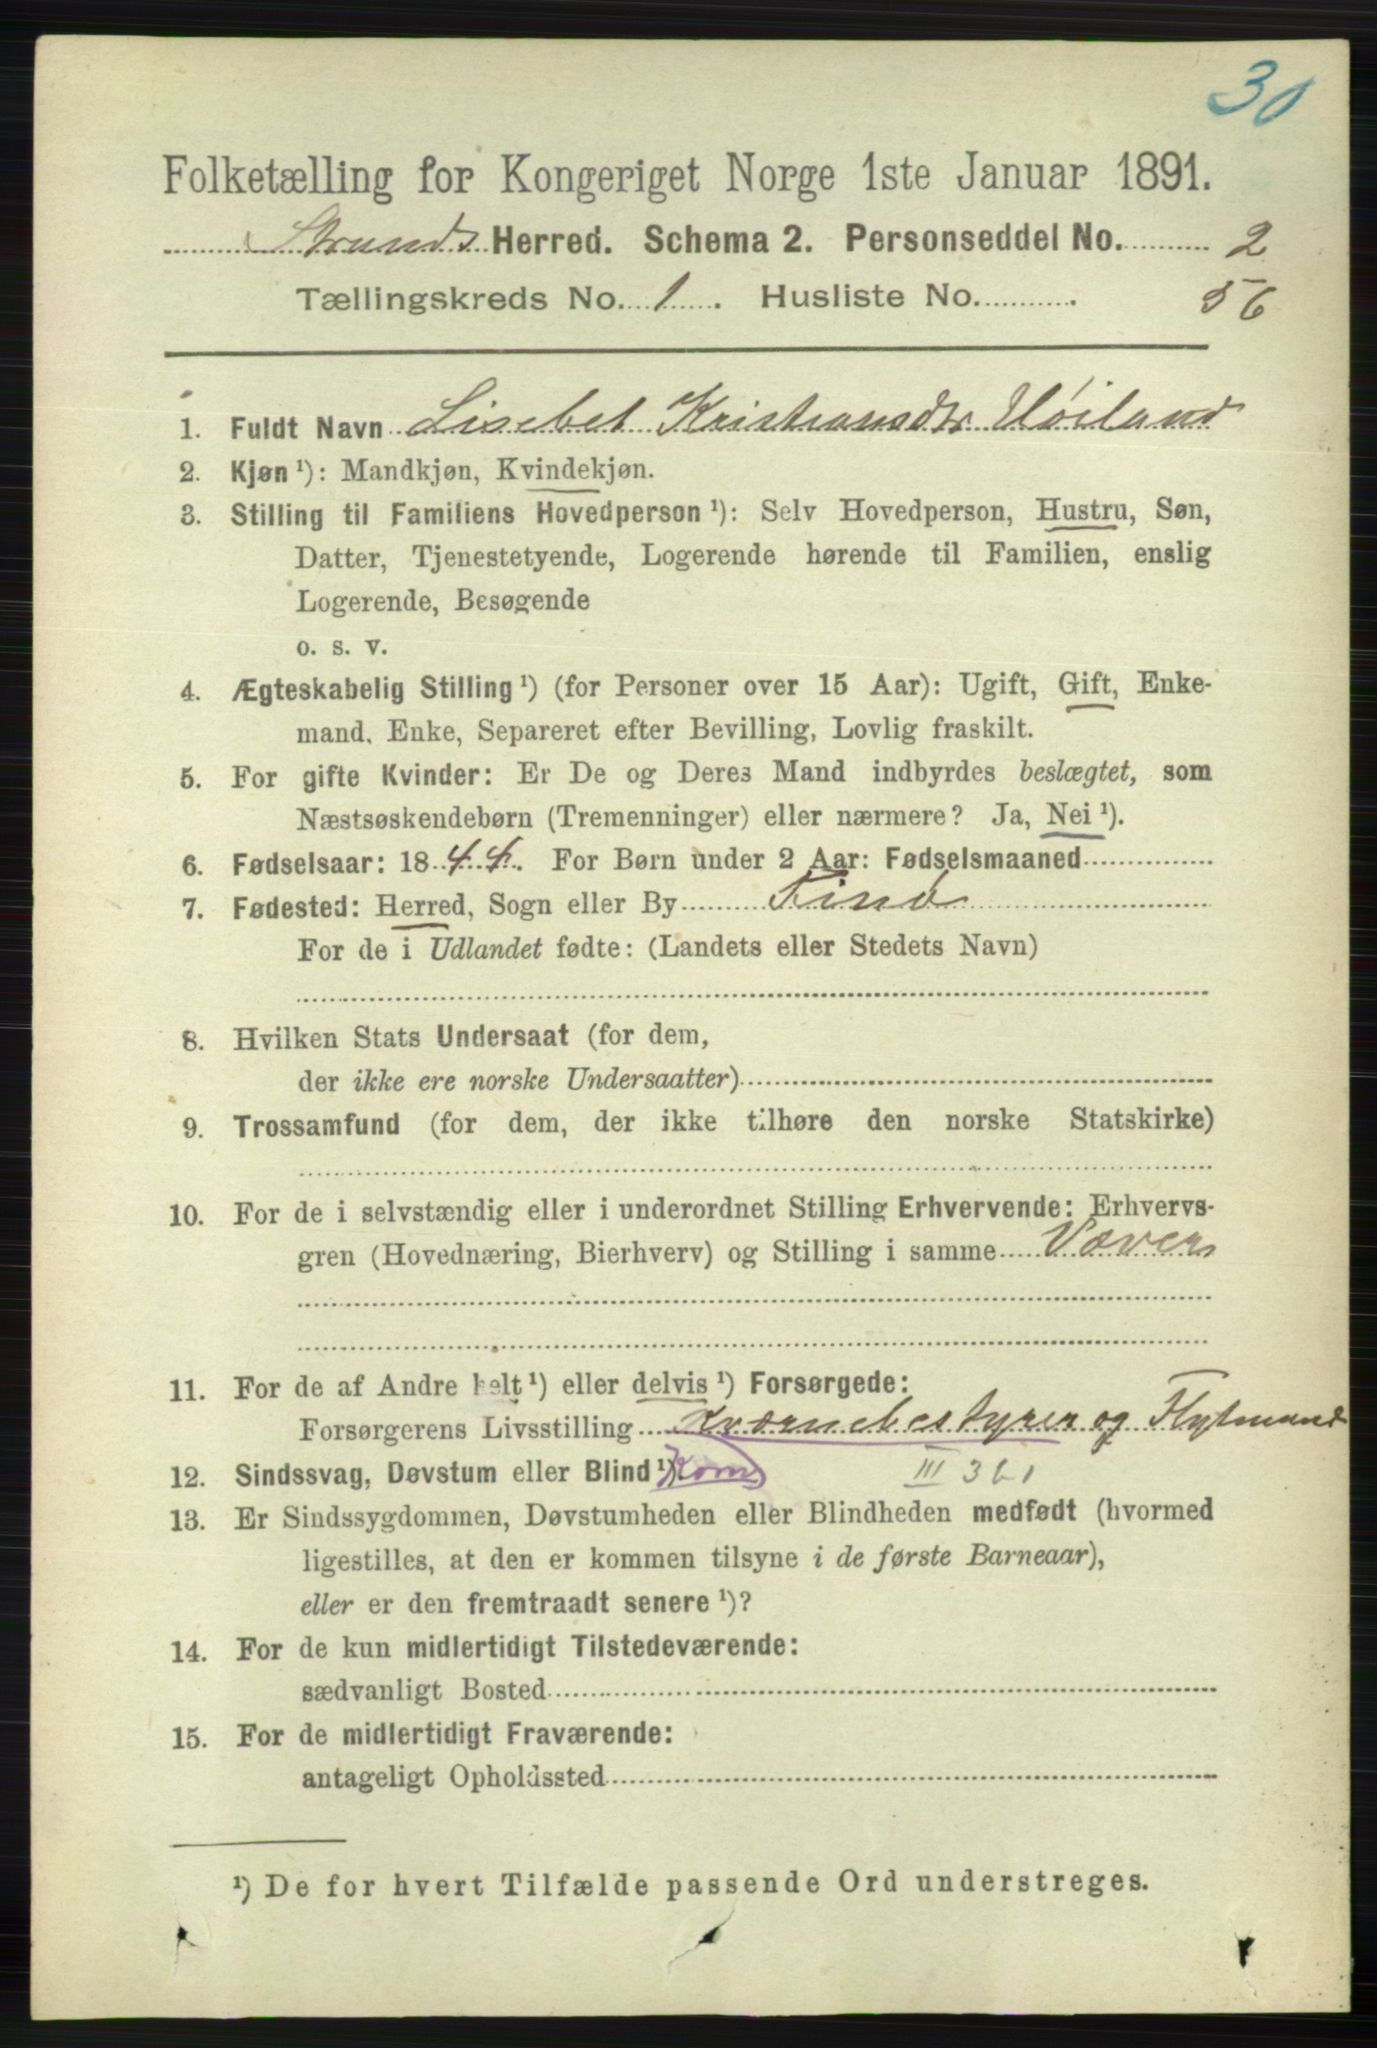 30
Folketælling for Kongeriget Norge 1ste Januar 1891.
Strands Herred. Schema 2. Personseddel No. 2
Tællingskreds No. 1. Husliste No. 56
1. Fuldt Navn Lisebet Kristiansdtr Høiland
2. Kjøn ¹): Mandkjøn, Kvindekjøn.
3. Stilling til Familiens Hovedperson ¹): Selv Hovedperson, Hustru, Søn,
Datter, Tjenestetyende, Logerende hørende til Familien, enslig
Logerende, Besøgende
o. s. v.
4. Ægteskabelig Stilling ¹) (for Personer over 15 Aar): Ugift, Gift, Enke-
mand, Enke, Separeret efter Bevilling, Lovlig fraskilt.
5. For gifte Kvinder: Er De og Deres Mand indbyrdes beslægtet, som
Næstsøskendebørn (Tremenninger) eller nærmere? Ja, Nei ¹).
6. Fødselsaar: 1844. For Børn under 2 Aar: Fødselsmaaned
7. Fødested: Herred, Sogn eller By Finø
For de i Udlandet fødte: (Landets eller Stedets Navn)
8. Hvilken Stats Undersaat (for dem,
der ikke ere norske Undersaatter)
9. Trossamfund (for dem, der ikke tilhøre den norske Statskirke)
10. For de i selvstændig eller i underordnet Stilling Erhvervende: Erhvervs-
gren (Hovednæring, Bierhverv) og Stilling i samme Væver
11. For de af Andre helt ¹) eller delvis ¹) Forsørgede:
Forsørgerens Livsstilling Kværnebestyrer og Flytmand
12. Sindssvag, Døvstum eller Blind ¹) Korn III 361
13. Er Sindssygdommen, Døvstumheden eller Blindheden medfødt (hvormed
ligestilles, at den er kommen tilsyne i de første Barneaar),
eller er den fremtraadt senere ¹)?
14. For de kun midlertidigt Tilstedeværende:
sædvanligt Bosted
15. For de midlertidigt Fraværende:
antageligt Opholdssted
¹) De for hvert Tilfælde passende Ord understreges.